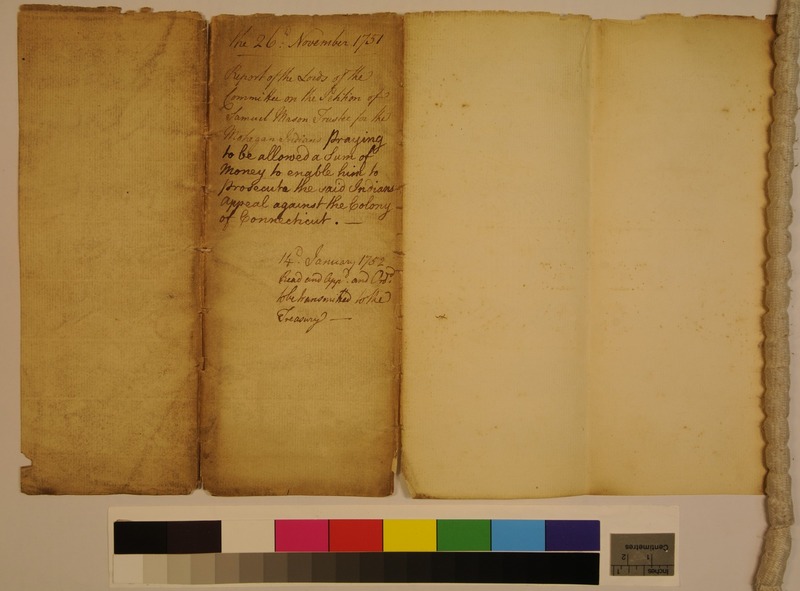 the 26.th November 1751
Report of the Lords of the
Committee on the Petition of
Samuel Mason Trustee for the
Mohegan Indians Praying
to be allowed a Sum of
Money to enable him to
Prosecute the said Indians
Appeal against the Colony
of Connecticut. —
14.th January 1752
Read and App.d and Ord.d
to be transmitted to the
Treasury —
Centimetres
1 2
Inches
1